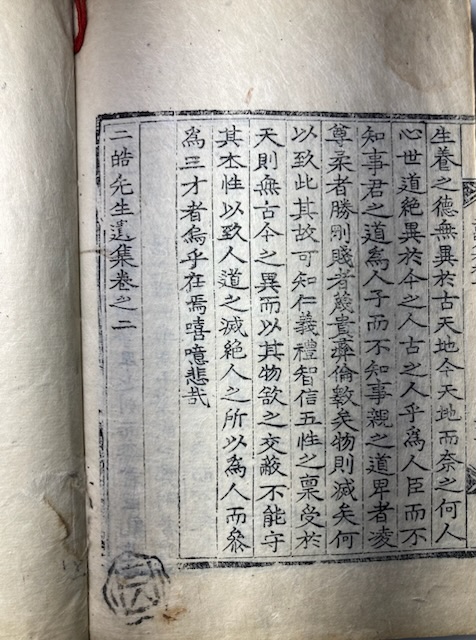 生養之德無異於古天地今天地而奈之何人
心世道絶異於今之人古之人乎爲人臣而不
知事君之道爲人子而不知事親之道卑者凌
尊柔者勝剛賤者蔑貴彜倫斁矣物則滅矣何
以致此其故可知仁義禮智信五性之稟受於
天則無古今之異而以其物欲之交蔽不能守
其本性以致人道之滅絕人之所以爲人而叅
爲三才者烏乎在焉嘻噫悲哉
二皓先生遺集卷之二